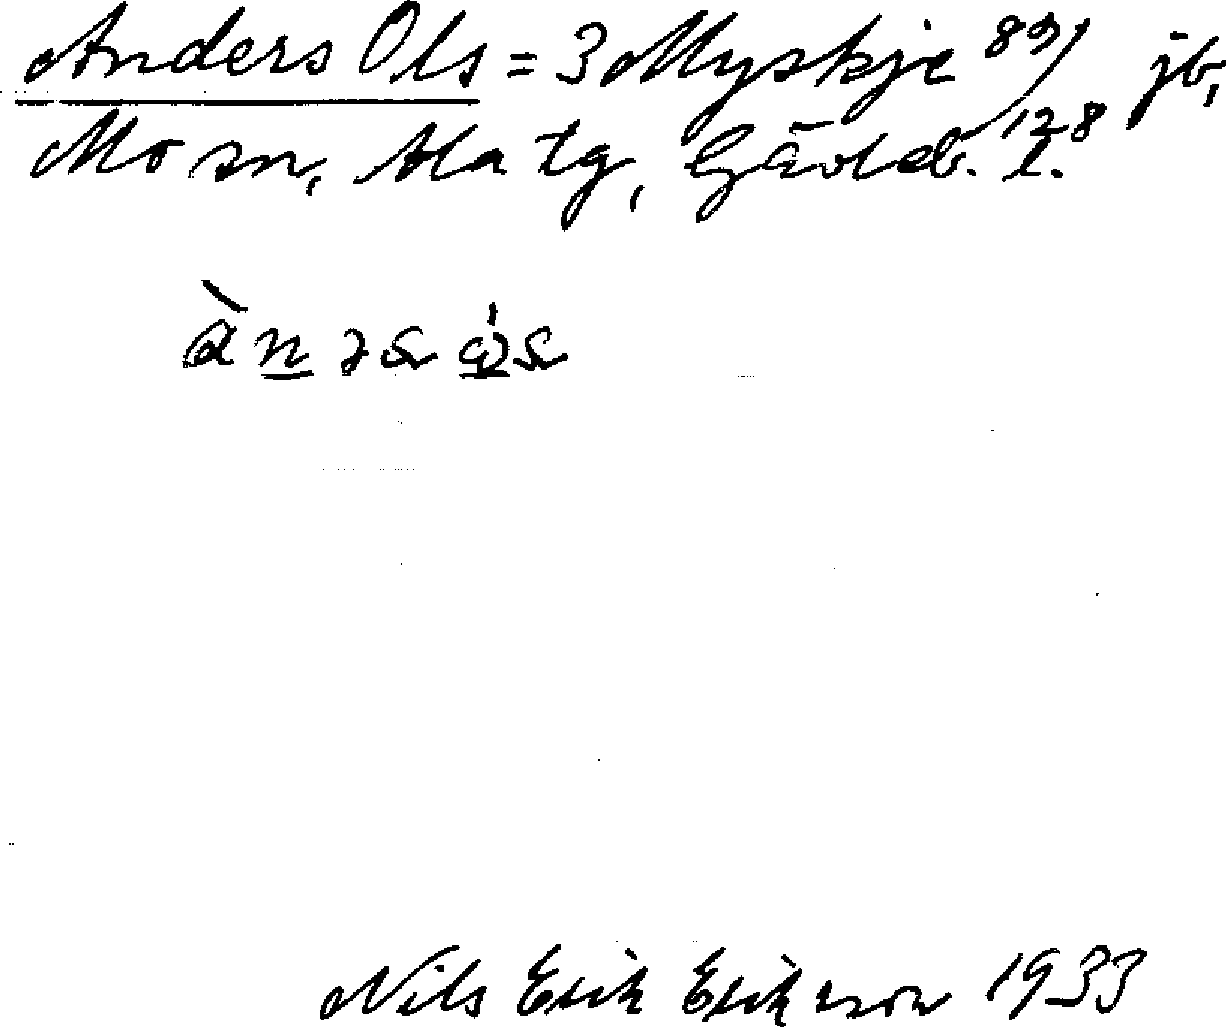 Anders Ols = 3 Myskje 89/128 jb,
Mo sn, Ala tg, Gävleb. l.
Nils Erik Erikson 1933